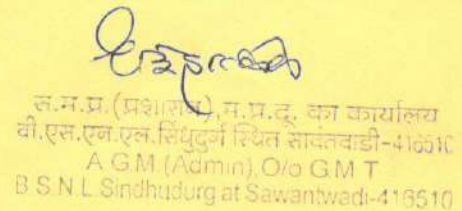 स.म.प्र.(प्रशासन),म.प्र.दू. का कार्यालय
बी.एस.एन.एल.सिंधुदुर्ग स्थित सावंतवाडी-416510
A G.M.(Admin), O/o G M T
B S.N.L. Sindhudurg at Sawantwadi-416510